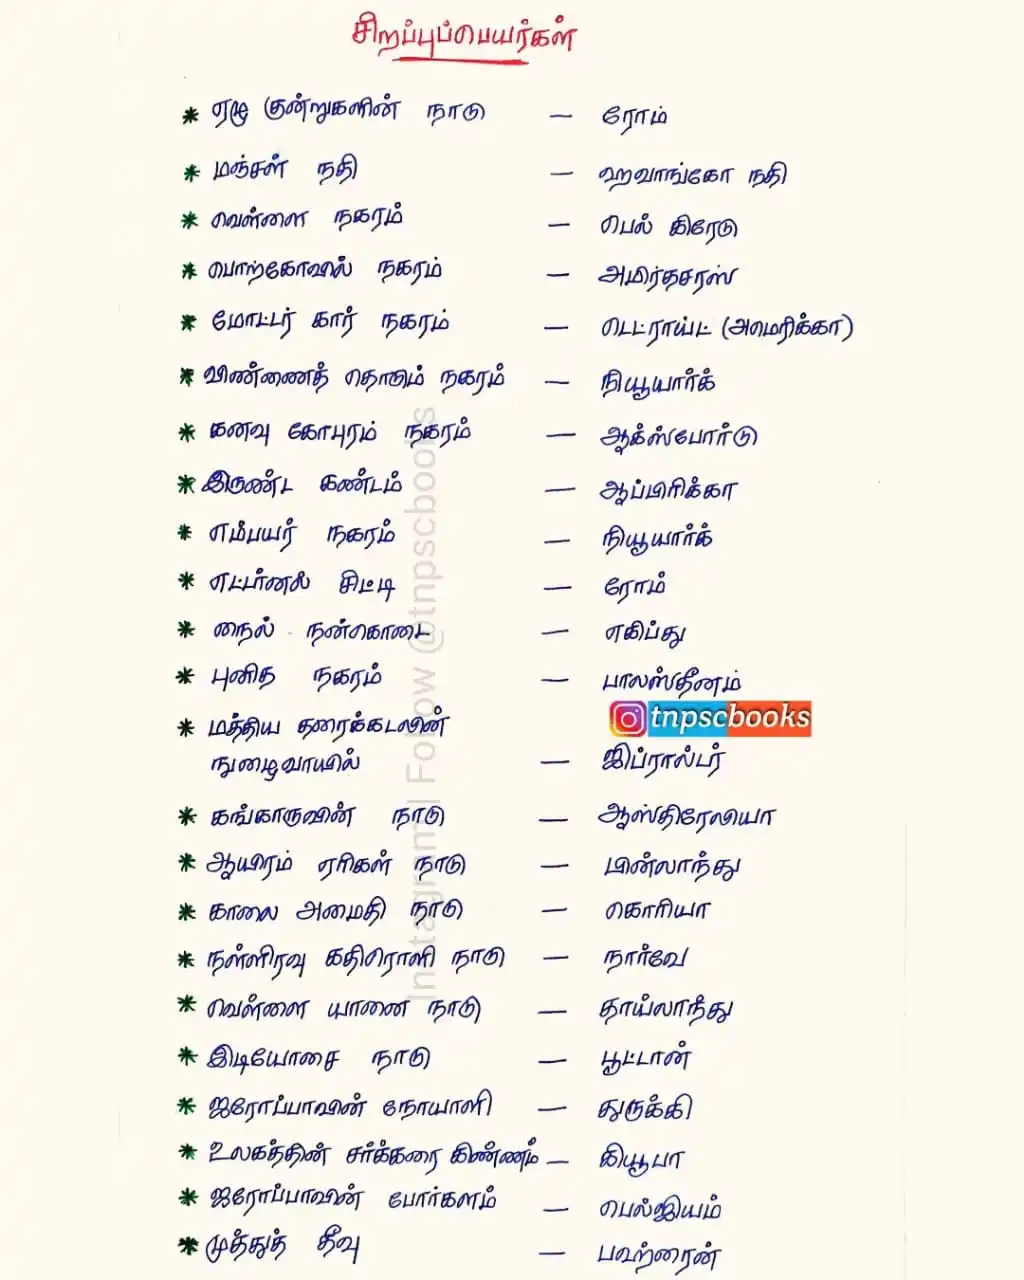 சிறப்புப்பெயர்கள்
* ஏழு குன்றுகளின் நாடு — ரோம்
* மஞ்சள் நதி — ஹவாங்கோ நதி
* வெள்ளை நகரம் — பெல் கிரேடு
* பொற்கோவில் நகரம் — அமிர்தசரஸ்
* மோட்டர் கார் நகரம் — டெட்ராய்ட் (அமெரிக்கா)
* விண்ணைத் தொடும் நகரம் — நியூயார்க்
* கனவு கோபுரம் நகரம் — ஆக்ஸ்போர்டு
* இருண்ட கண்டம் — ஆப்பிரிக்கா
* எம்பயர் நகரம் — நியூயார்க்
* எட்டர்னல் சிட்டி — ரோம்
* நைல் நன்கொடை — எகிப்து
* புனித நகரம் — பாலஸ்தீனம்
tnpscbooks
* மத்திய தரைக்கடலின்
நுழைவாயில் — ஜிப்ரால்டர்
* கங்காருவின் நாடு — ஆஸ்திரேலியா
* ஆயிரம் ஏரிகள் நாடு — பின்லாந்து
* காலை அமைதி நாடு — கொரியா
* நள்ளிரவு கதிரொளி நாடு — நார்வே
* வெள்ளை யானை நாடு — தாய்லாந்து
* இடியோசை நாடு — பூட்டான்
* ஐரோப்பாவின் நோயாளி — துருக்கி
* உலகத்தின் சர்க்கரை கிண்ணம் — கியூபா
* ஐரோப்பாவின் போர்களம் — பெல்ஜியம்
* முத்துத் தீவு — பஹ்ரைன்
Instagram | Follow @tnpscbooks